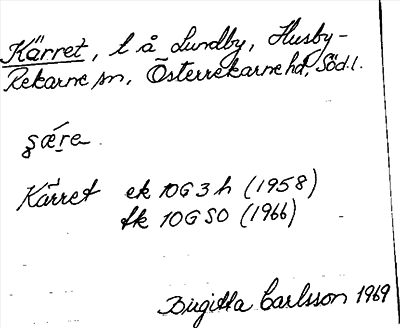 Kärret, l å Lundby, Husby-
Rekarne sn, Österrekarne hd, Söd.l.
şǽre
Kärret ek 10G3h (1958)
tk 10G SO (1966)
Birgitta Carlsson 1969